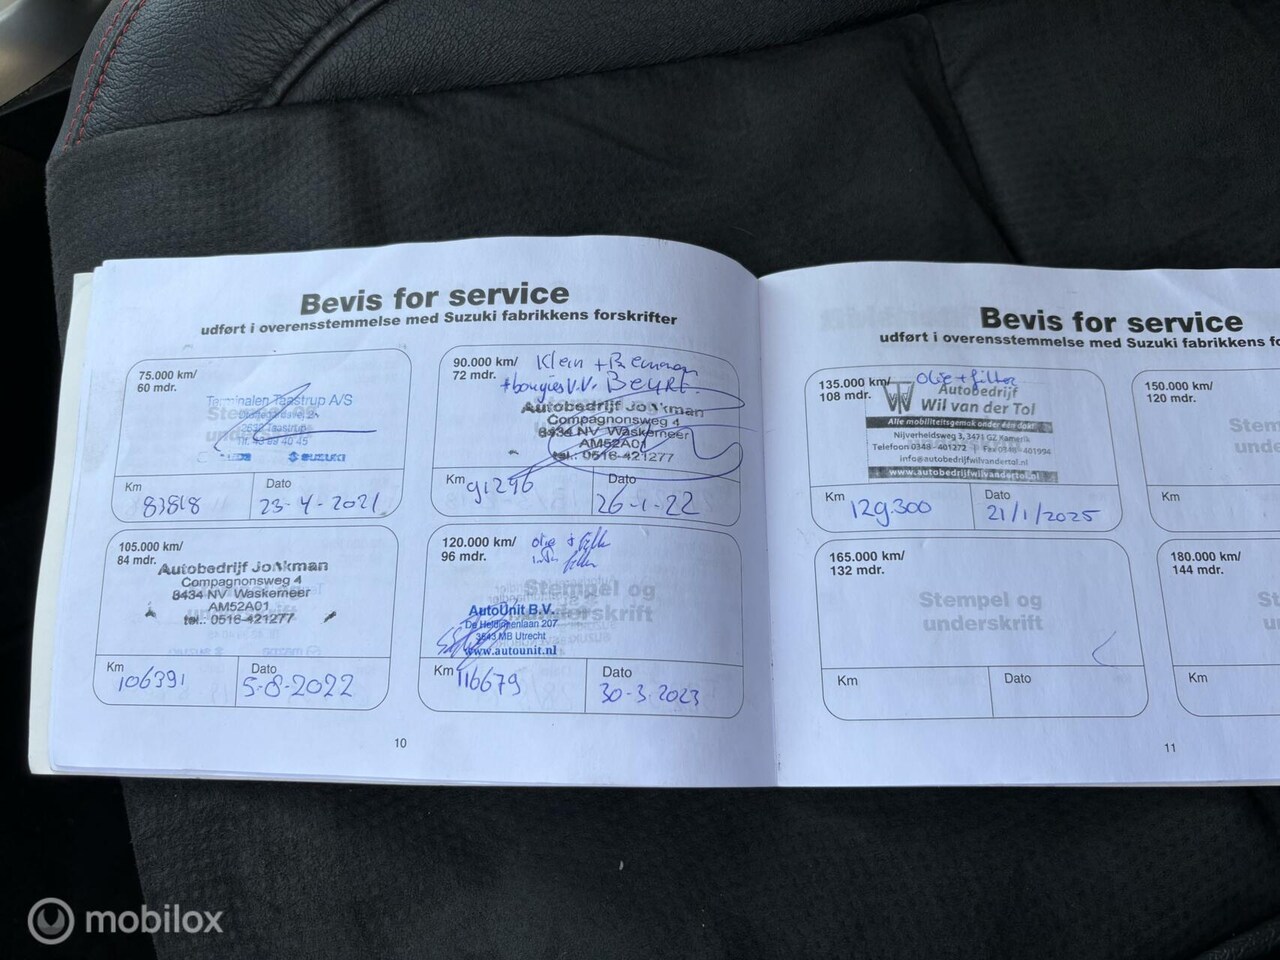 Bevis for service
udført i overensstemmelse med Suzuki fabrikkens forskrifter
75.000 km/
60 mdr.
Terminalen Taastrup A/S
2630 Taastrup
SUZUKI
Km
83818
Dato
23-4-2021
90.000 km/
72 mdr.
Klein +
+bougies V.V. Beurt.
Autobedrijf Jonkman
Compagnonsweg 4
8434 NV Waskemeer
AM52A01
tel.: 0516-421277
Km
91296
Dato
26-1-22
105.000 km/
84 mdr.
Autobedrijf Jonkman
Compagnonsweg 4
8434 NV Waskemeer
AM52A01
tel.: 0516-421277
Km
106391
Dato
5-8-2022
120.000 km/
96 mdr.
olie + filter
filter
Stempel og
underskrift
AutoUnit B.V.
207
3543 MB Utrecht
www.autounit.nl
Km
116679
Dato
30-3-2023
10
Bevis for service
udført i overensstemmelse med Suzuki fabrikkens fo
135.000 km/
108 mdr.
olie + filter
Autobedrijf
Wil van der Tol
Alle mobiliteitsgemak onder één dak!
Nijverheidsweg 3, 3471 GZ Kamerik
Telefoon 0348-401272 | Fax 0348-401994
info@autobedrijfwilvandertol.nl
www.autobedrijfwilvandertol.nl
Km
129.300
Dato
21/1/2025
150.000 km/
120 mdr.
Km
165.000 km/
132 mdr.
Stempel og
underskrift
Km
Dato
180.000 km/
144 mdr.
Km
11
mobilox